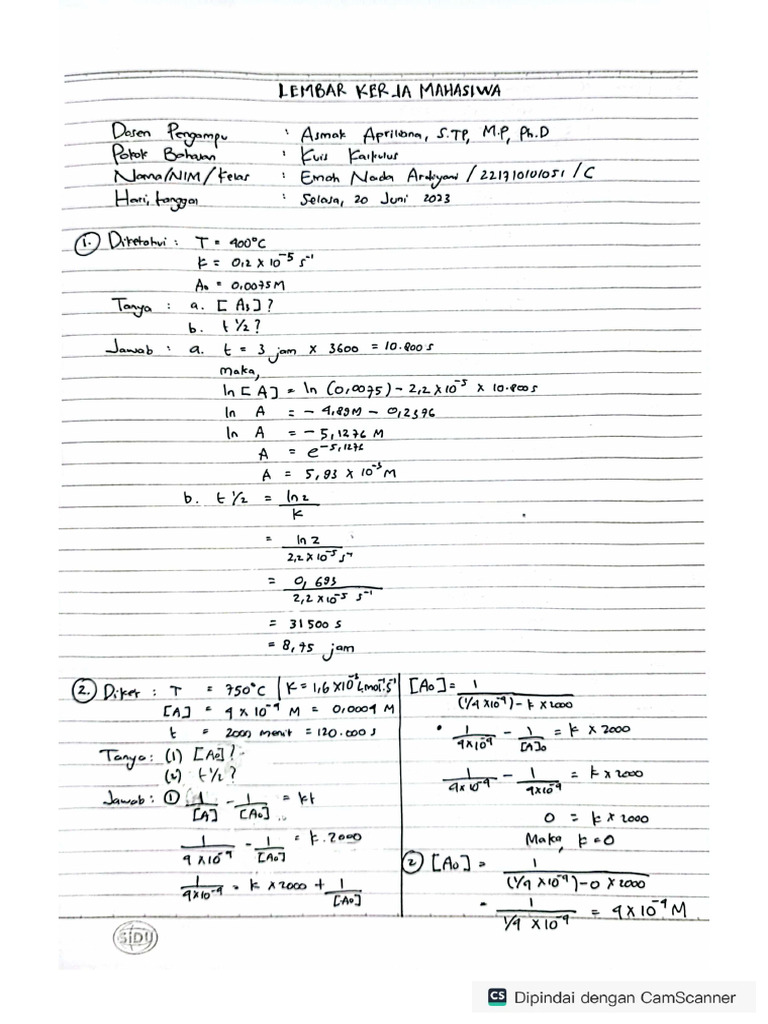 LEMBAR KERJA MAHASIWA
Dosen Pengampu : Asmak Afriliana, S.TP, M.P, Ph.D
Pokok Bahasan : Kuis Kalkulus
Nama/NIM/Kelas : Emah Nada Ardiyani / 221710101051 / C
Hari, tanggal : Selasa, 20 Juni 2023
1. Diketahui : T = 400°C
k = 0,2 x 10⁻⁵ s⁻¹
A₀ = 0,0075M
Tanya : a. [A₃]?
b. t ½?
Jawab : a. t = 3 jam x 3600 = 10.800 s
Maka,
ln [A] = ln (0,0075) - 2,2 x 10⁻⁵ x 10.800s
ln A = - 4,89M - 0,2376
ln A = - 5,1276 M
A = e^-5,1276
A = 5,93 x 10⁻³ M
b. t ½ = ln 2 / k
= ln 2 / 2,2 x 10⁻⁵ s⁻¹
= 0,693 / 2,2 x 10⁻⁵ s⁻¹
= 31500 s
= 8,75 jam
2. Diket : T = 750°C | K = 1,6 x 10⁻² L mol⁻¹ s⁻¹
[A] = 4 x 10⁻⁴ M = 0,0004 M
t = 2000 menit = 120.000 s
Tanya : (1) [A₀]?
(2) t ½?
Jawab : 1 1/[A] - 1/[A₀] = kt
1/4 x 10⁻⁴ - 1/[A₀] = k . 2000
1/4x10⁻⁴ = k x 2000 + 1/[A₀]
[A₀] = 1 / (1/4 x10⁻⁴) - k x 2000
• 1/4x10⁻⁴ - 1/[A]₀ = k x 2000
1/4x10⁻⁴ - 1/4x10⁻⁴ = k x 2000
0 = k x 2000
Maka, k = 0
2 [A₀] = 1 / (1/4 x 10⁻⁴) - 0 x 2000
= 1 / 1/4 x 10⁻⁴ = 4 x 10⁻⁴ M
SIDU
CS Dipindai dengan CamScanner